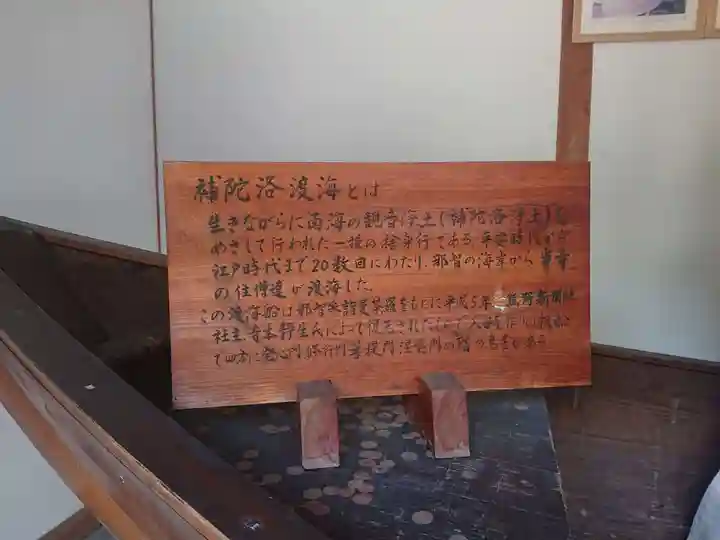 補陀洛渡海とは
生きながらに南海の観音浄土(補陀洛浄土)を
めざして行われた一種の捨身行である。平安時代から
江戸時代まで20数回にわたり、那智の海岸から当寺
の住僧達が渡海した。
この渡海船は那智参詣曼荼羅をもとに平成5年、熊野新聞
社主、寺本静生氏によって復元された
て四方に発心門 修行門 菩提門 涅槃門の の鳥居がある